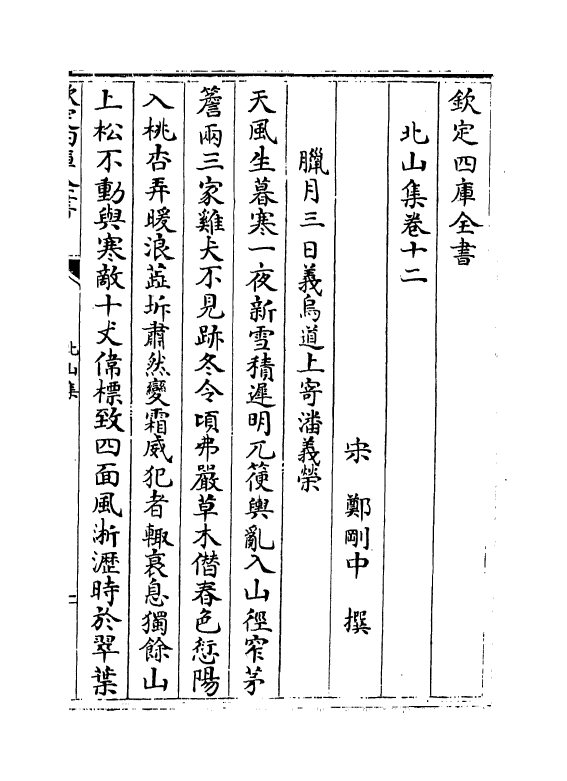 欽定四庫全書
北山集卷十二
宋 鄭剛中 撰
臘月三日義烏道上寄潘義榮
天風生暮寒一夜新雪積遲明兀筍輿亂入山徑窄茅
簷兩三家雞犬不見跡冬令頃弗嚴草木偕春色愆陽
入桃杏弄暖浪蕋坼肅然變霜威犯者輙衰息獨餘山
上松不動與寒敵十丈偉標致四面風淅瀝時於翠葉
北山集